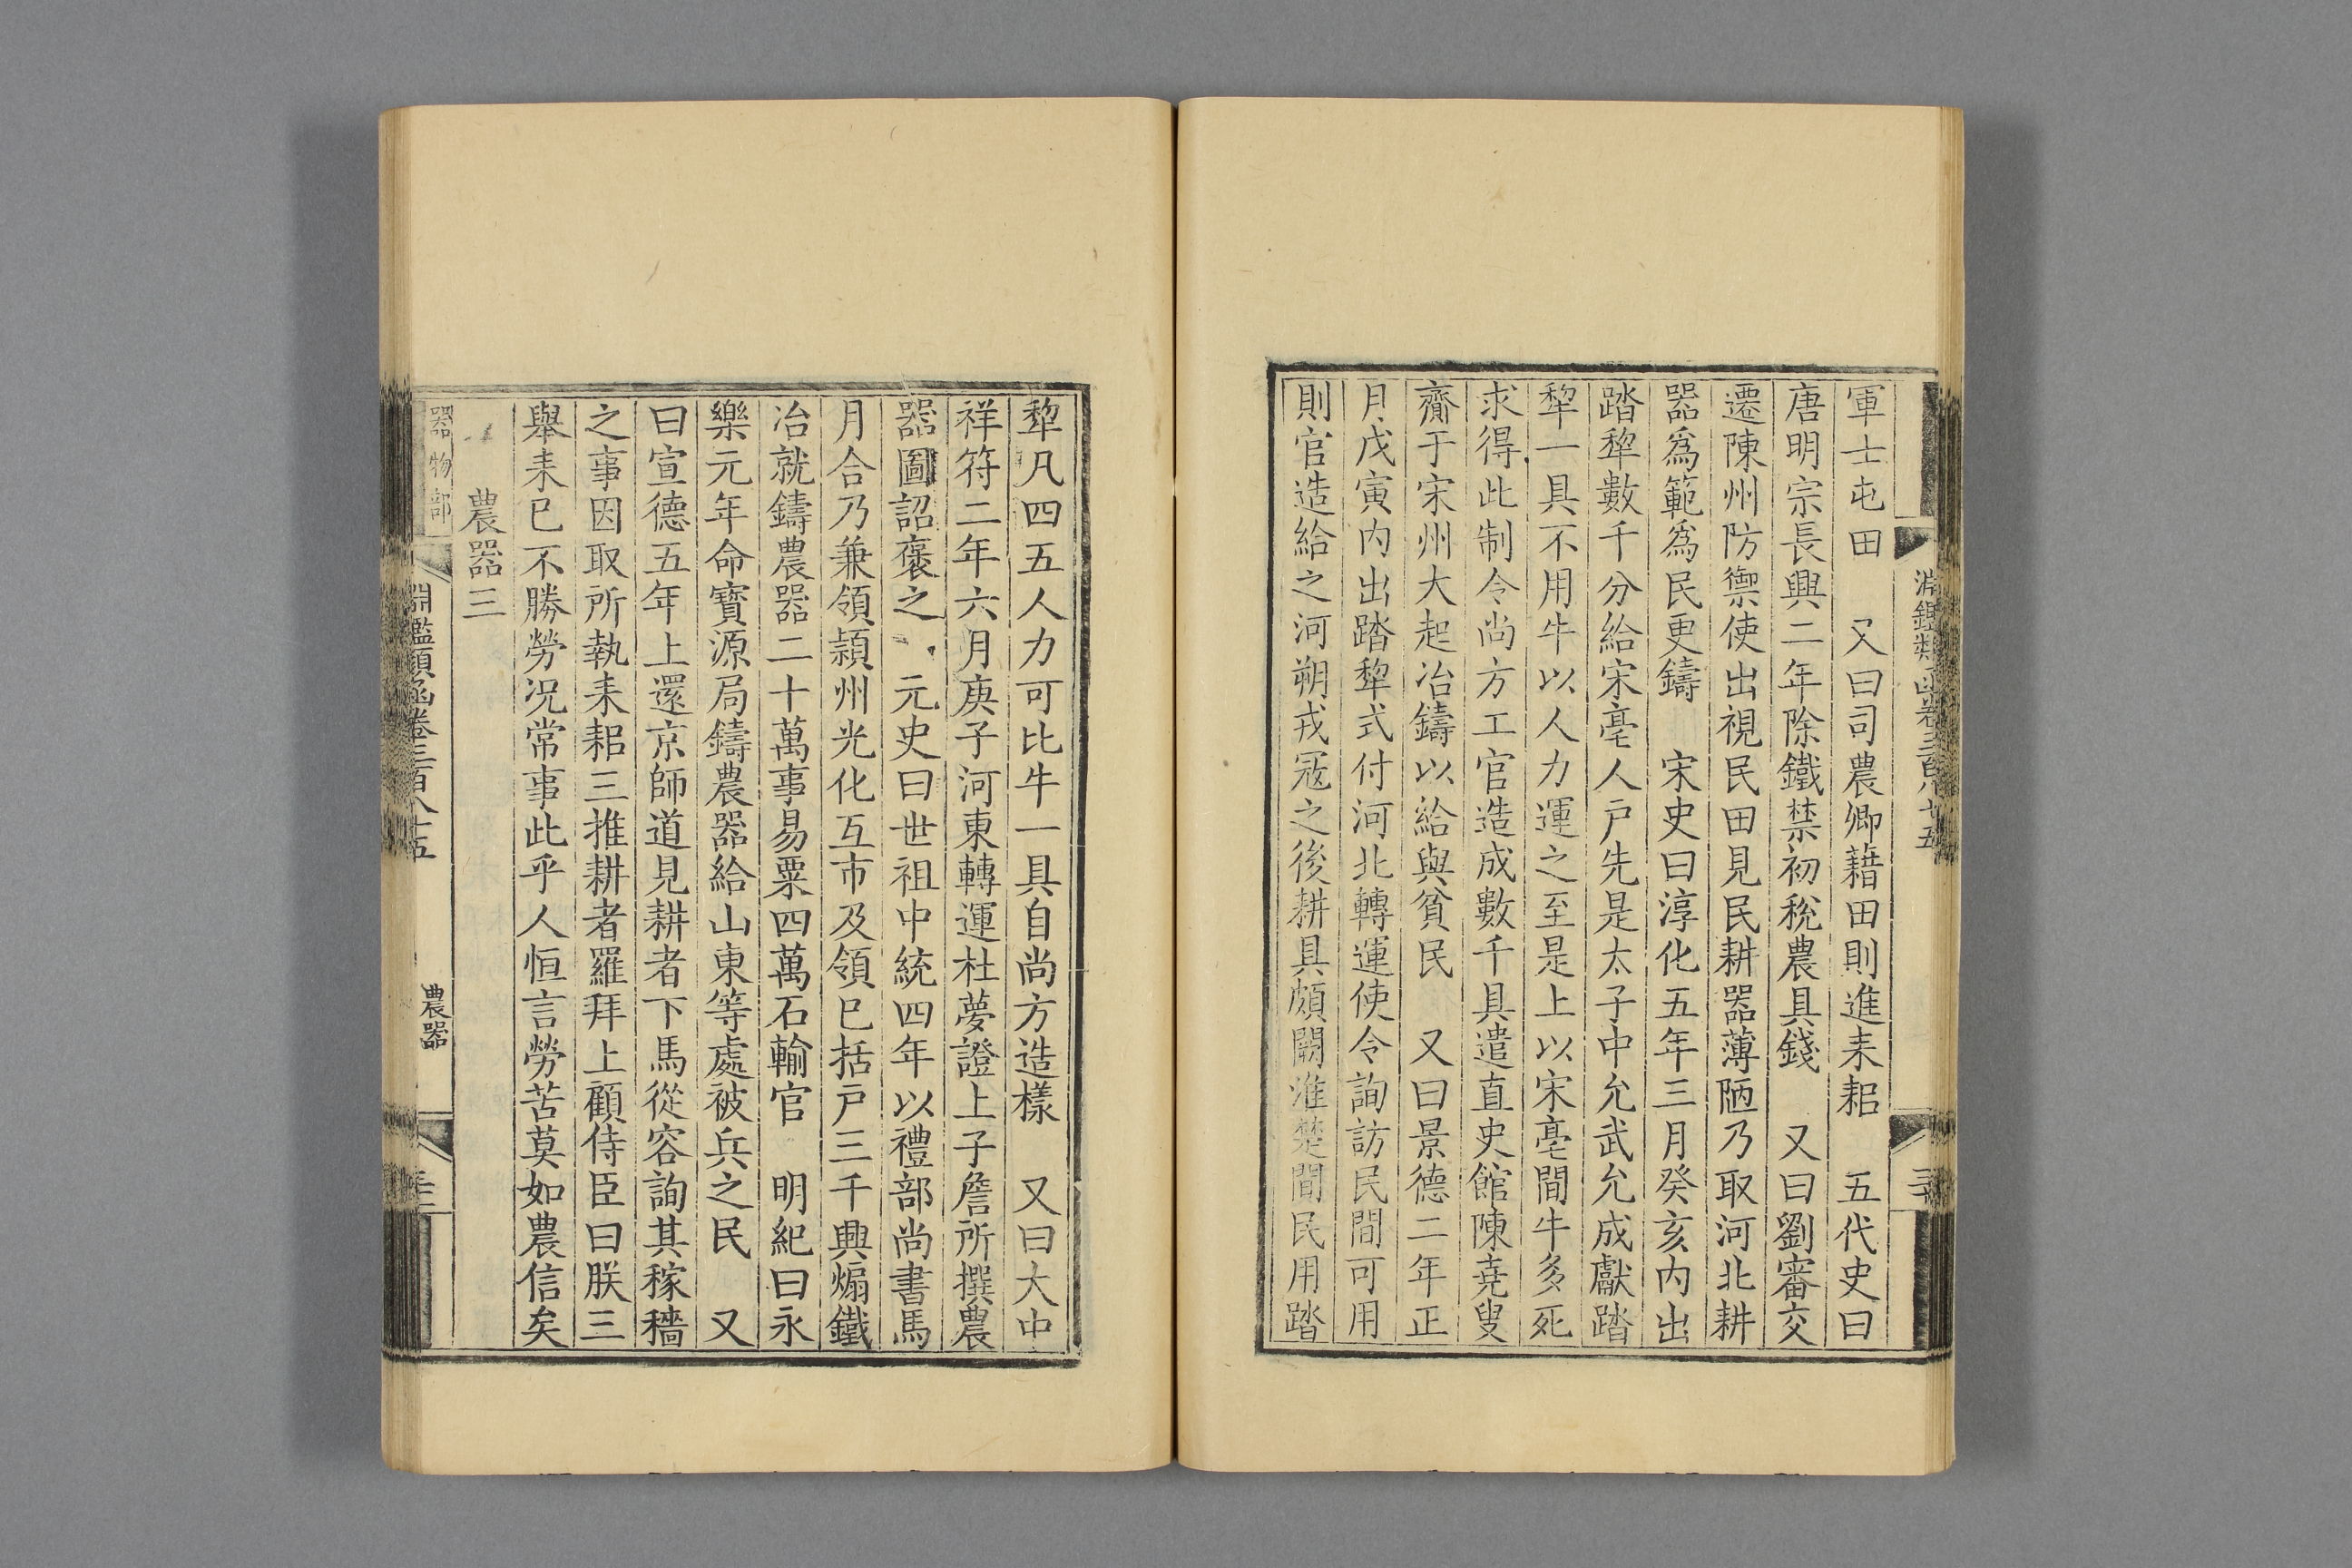 軍士屯田　又曰司農卿藉田則進耒耜　五代史曰
唐明宗長興二年除鐵禁初稅農具錢　又曰劉審交
遷陳州防禦使出視民田見民耕器薄陋乃取河北耕
器爲範爲民更鑄　宋史曰淳化五年三月癸亥內出
踏犂數千分給宋亳人戶先是太子中允武允成獻踏
犂一具不用牛以人力運之至是上以宋亳間牛多死
求得此制令尚方工官造成數千具遣直史館陳堯叟
齎于宋州大起冶鑄以給與貧民　又曰景德二年正
月戊寅內出踏犂式付河北轉運使令詢訪民間可用
則官造給之河朔戎寇之後耕具頗闕淮楚間民用踏
犂凡四五人力可比牛一具自尚方造樣　又曰大中
祥符二年六月庚子河東轉運杜夢證上子詹所撰農
器圖詔褒之　元史曰世祖中統四年以禮部尚書馬
月合乃兼領潁州光化互市及領已括戶三千興煽鐵
冶就鑄農器二十萬事易粟四萬石輸官　明紀曰永
樂元年命寶源局鑄農器給山東等處被兵之民　又
曰宣德五年上還京師道見耕者下馬從容詢其稼穡
之事因取所執耒耜三推耕者羅拜上顧侍臣曰朕三
舉耒已不勝勞況常事此乎人恒言勞苦莫如農信矣
農器三
器物部
淵鑑類函卷三百八十五
農器